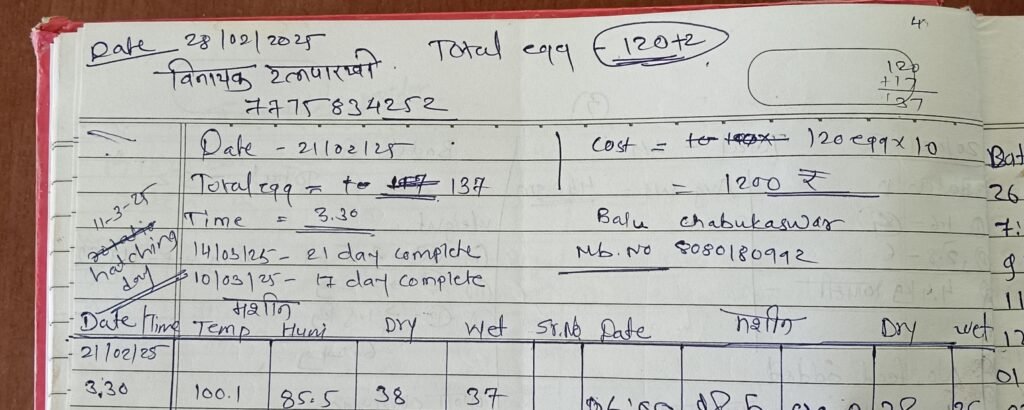 Date 28/02/2025 Total egg - 120+2
4
विनायक रत्नपारखी.
7775834252
120
+17
137
Date - 21/02/25
Cost = 120 egg x 10
Total egg = 137
= 1200 ₹
Time = 3.30
Balu chabukaswar
14/03/25 - 21 day complete
Mb. No 8080180992
10/03/25 - 17 day complete
11-3-25
hatching
day
मशीन
Date/Time Temp Humi Dry Wet Sr.No Date मशीन Dry Wet
21/02/25
3.30 100.1 85.5 38 37
Bat
26
7:
9
11
12
01